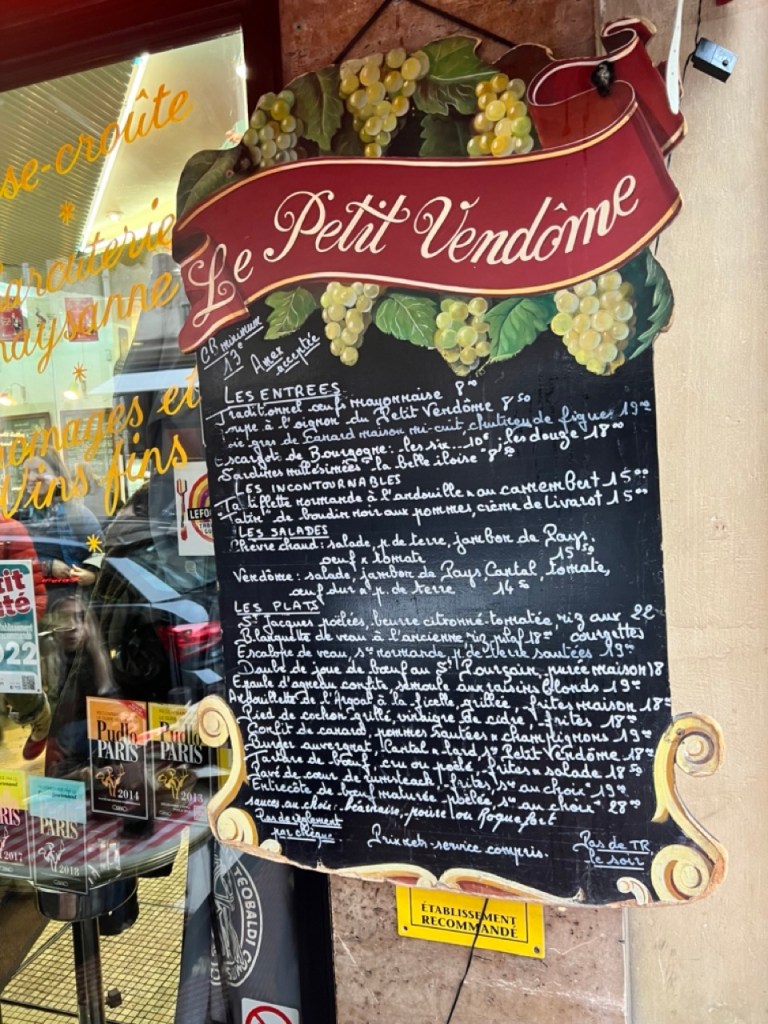 Le Petit Vendôme
CB minimum
13€
Amex
acceptée
LES ENTREES
Traditionnel oeufs mayonnaise 8
Soupe à l'oignon du Petit Vendôme 8 50
Foie gras de canard maison mi-cuit, chutney de figues 19
Escargots de Bourgogne: les six... 10€, les douze 18
Sardines millésimées "la belle iloise" 8
LES INCONTOURNABLES
"Ta"tiflette normande à l'andouille x au camembert 15
"Tatin" de boudin noir aux pommes, crème de livarot 15
LES SALADES
Chèvre chaud: salade, p. de terre, jambon de Pays,
oeuf x tomate 15 50
Vendôme: salade, jambon de Pays, Cantal, tomate,
oeuf dur x p. de terre 14
LES PLATS
St Jacques poêlées, beurre citronné-tomatée, riz aux 22
courgettes
Blanquette de veau à l'ancienne riz pilaf 18
Escalope de veau, sce normande, p. de terre sautées 19
Daube de joue de boeuf au St Pourçain, purée maison 18
Epaule d'agneau confite, semoule aux raisins blonds 19
Andouillette de l'Argoat à la ficelle, grillée, frites maison 18
Pied de cochon grillé, vinaigre de cidre, frites 18
Confit de canard, pommes sautées x champignons 19
Burger auvergnat, Cantal x lard, sce Petit Vendôme 18
Tartare de boeuf, cru ou poêlé, frites x salade 18 50
Pavé de coeur de rumsteack, frites, sce au choix 19
Entrecôte de boeuf maturée poêlée, sce au choix 28
sauces au choix: béarnaise, poivre ou Roquefort
Pas de règlement
par chèque
Prix net-service compris.
Pas de TR
le soir
ÉTABLISSEMENT
RECOMMANDÉ
se-croûte
arcuterie
aysanne
omages et
Vins fins
LEFO
tit
té
022
Pudlo
PARIS
2014
Pudlo
PARIS
2013
2017
PARIS
2018
TEOBALDI